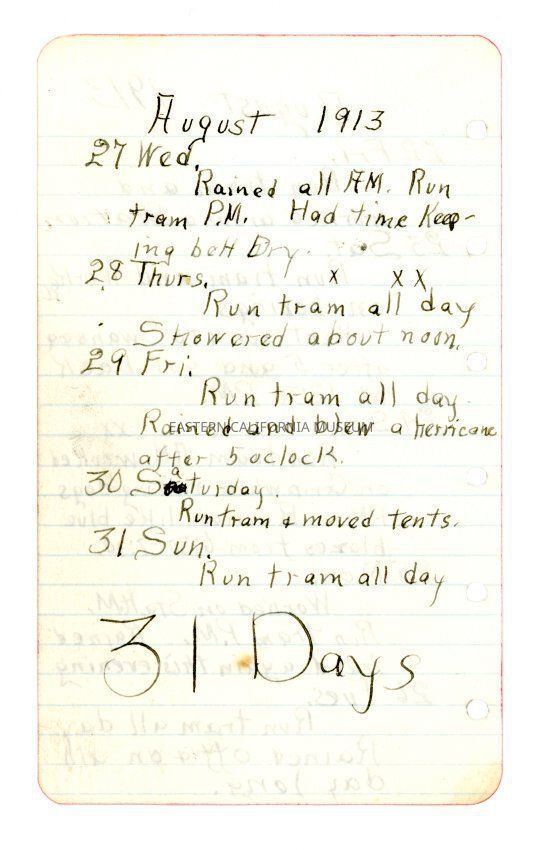 August 1913
27 Wed.
Rained all AM. Run
tram P.M. Had time Keep-
ing belt Dry.
28 Thurs. x x x
Run tram all day
Showered about noon.
29 Fri.
Run tram all day.
Rained and blew a herricane
EASTERN CALIFORNIA MUSEUM
after 5 oclock.
30 Saturday.
Run tram & moved tents.
31 Sun.
Run tram all day
31 Days